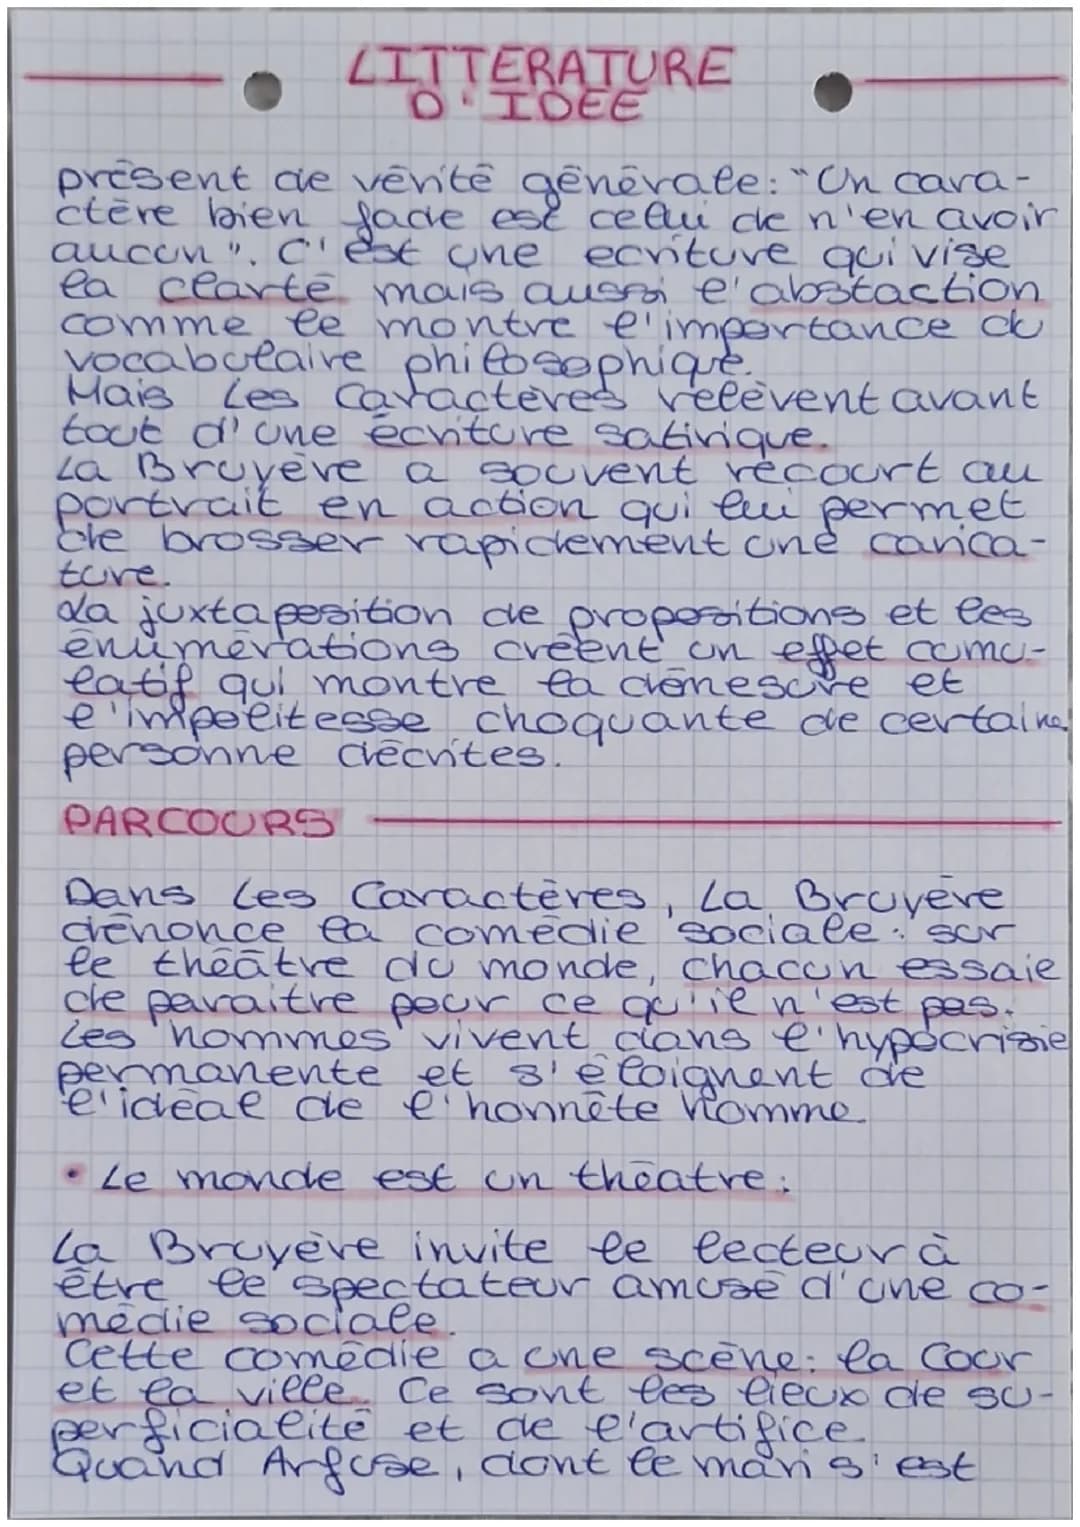 LITTERATURE
D'IDEE
présent de vérité générale: "Un cara-
ctère bien fade est celui de n'en avoir
aucun". C'est une ecriture qui vise
la clarté mais aussi l'abstaction
comme le montre l'importance du
vocabulaire philosophique.
Mais Les Caractères relèvent avant
tout d'une écriture satirique.
La Bruyère a souvent recourt au
portrait en action qui lui permet
de brosser rapidement une carica-
ture.
La juxtaposition de propositions et les
énumérations créent un effet cumu-
latif qui montre la démesure et
l'impolitesse choquante de certaine
personne décrites.
PARCOURS
Dans Les Caractères, La Bruyère
dénonce la comédie sociale: sur
le théâtre du monde, chacun essaie
de paraitre pour ce qu'il n'est pas.
Les hommes vivent dans l'hypocrisie
permanente et s'éloignent de
l'idéal de l'honnête homme.
• Le monde est un théâtre:
La Bruyère invite le lecteur à
être le spectateur amusé d'une co-
médie sociale.
Cette comédie a une scène: la Cour
et la ville. Ce sont les lieux de su-
perficialité et de l'artifice.
Quand Arfuse, dont le mari s'est